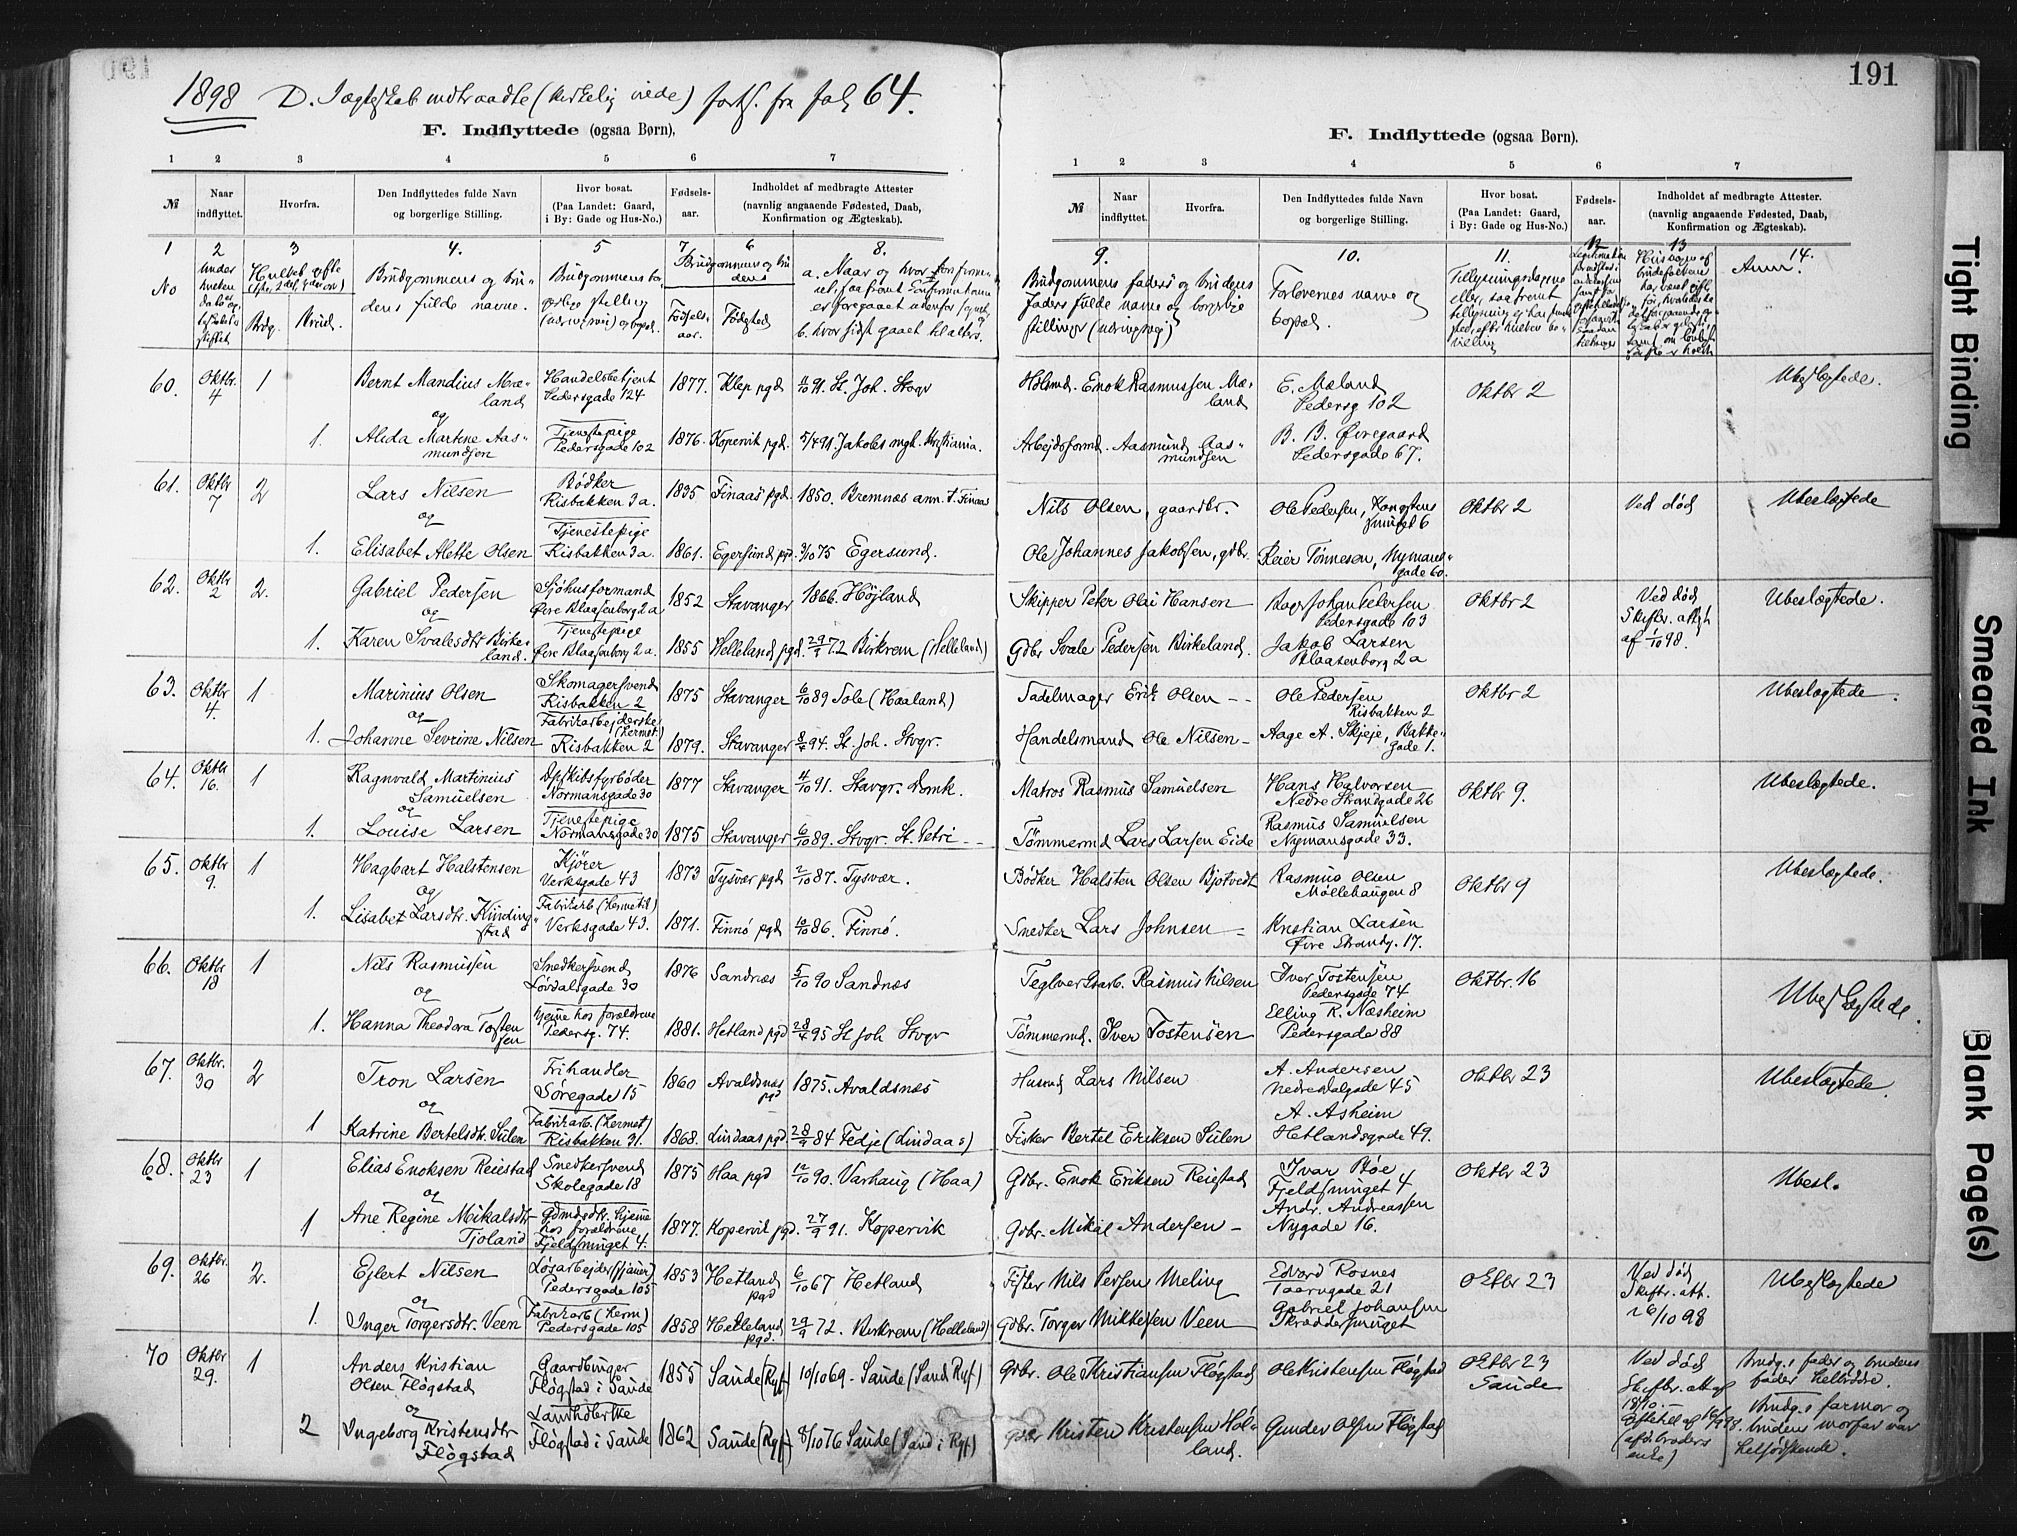 191
1898 D. Ægteskab indtraadte (kirkelig viede) forts. fra fol 64.
F. Indflyttede (ogsaa Børn),
1 2 3 4 5 6 7
№
Naar indflyttet.
Hvorfra.
Den Indflyttedes fulde Navn
og borgerlige Stilling.
Hvor bosat.
(Paa Landet: Gaard,
i By: Gade og Hus-No.)
Fødsels-
aar.
Indholdet af medbragte Attester
(navnlig angaaende Fødested, Daab,
Konfirmation og Ægteskab).
1 2 3 4. 5 7 6 8.
No
Brudg. Brud.
Brudgommens og bru-
dens fulde navne.
Brudgommens og bru
dens
Fødsels-
aar.
Fødested
b. hvor sidst gaaet til alters.
60. Oktbr. 4 1 Bernt Mandius Mæ-
land
Handelsbetjent
Pedersgade 124
1877. Klep pgd 4/10 91. St. Joh. Stvgr
og
1. Alida Martine Aas-
mundsen
Tjenestepige
Pedersgade 102
1876. Kopervik pgd. 5/4 91. Jakobs mgh. Kristiania.
61. Oktbr 7 2 Lars Nilsen
Bødker
Risbakken 3a.
1835 Finaas pgd. 1850. Bremnæs ann. t. Finaas
og
1. Elisabet Alette Olsen
Tjenestepige
Risbakken 3a.
1861. Egersund pgd. 3/10 75 Egersund.
62. Oktbr 2 2. Gabriel Pedersen
Sjøhusformand
Øvre Blaasenborg 2a
1852 Stavanger 1866. Højland
og
1. Karen Svalesdtr Birke-
land.
Tjenestepige
Øvre Blaasenborg 2a.
1855 Helleland pgd. 29/9 72 Birkrem (Helleland)
63. Oktbr 4. 1 Marinius Olsen
Skomagersvend
Risbakken 2
1875 Stavanger 6/10 89 Sole (Haaland)
og
1. Johanne Sevrine Nilsen
Fabrikarbejderske
(hermet.)
Risbakken 2
1879. Stavanger 8/4 94. St. Joh. Stvgr.
64. Oktbr 16. 1 Ragnvald Martinius
Samuelsen
Dpskibsfyrbøder
Normansgade 30
1877 Stavanger 4/10 91. Stavgr. Domk.
og
1. Louise Larsen
Tjenestepige
Normansgade 30
1875 Stavanger 6/10 89. Stvgr. St. Petri - -
65. Oktbr 9. 1 Hagbart Halstensen
Kjører
Verksgade 43
1873 Tysvær pgd 2/10 87. Tysvær.
og
1. Lisabet Larsdtr. Kinding-
stad
Fabrikarb (hermetik)
Verksgade 43.
1871. Finnø pgd 10/10 86. Finnø.
66. Oktbr 18 1 Nils Rasmussen
Snedkersvend
Løvdalsgade 30
1876 Sandnæs 5/10 90 Sandnæs
og
1. Hanna Theodora Tosten
sen
hjeme hos forældrene
Pedersg. 74.
1881. Hetland pgd 28/4 95 St Joh Stvgr
67. Oktbr. 30 2 Tron Larsen
Frihandler
Søregade 15
1860 Avaldsnæs
pgd
1875. Avaldsnæs
og
1 Katrine Bertelsdtr. Sulen
Fabrikarb. (hermet)
Risbakken 31.
1868. Lindaas pgd. 28/9 84 Fedje (Lindaas)
68. Oktbr 23 1 Elias Enoksen Reiestad
Snedkersvend
Skolegade 18
1875 Haa pgd 12/10 90. Varhaug (Haa)
og
1 Ane Regine Mikalsdtr
Tjoland
Gdmdsdtr. hjeme
hos forældrene
Fjeldsmuget 4.
1877. Kopervik pgd. 27/9 91. Kopervik
69. Oktbr. 26 2. Ejlert Nilsen
Løsarbejder (sjauer)
Pedersgade 105
1853 Hetland
pgd
6/10 67 Hetland
og
1. Inger Torgersdtr. Veen
Fabrikarb (herm)
Pedersgade 105
1858 Helleland
pgd.
29/9 72. Birkrem (Helleland)
70 Oktbr 29. 1 Anders Kristian
Olsen Fløgstad
Gaardbruger
Fløgstad i Saude
1855 Saude (Ryf) 10/10 69. Saude (Sand Ryf.)
og
2 Ingeborg Kristensdtr
Fløgstad
Fløgstad i Saude
1862 Saude (Ryf) 8/10 76 Saude (Sand i Ryf.)
F. Indflyttede (ogsaa Børn).
1 2 3 4 5 6 7
№
Naar
indflyttet.
Hvorfra.
Den Indflyttedes fulde Navn
og borgerlige Stilling.
Hvor bosat.
(Paa Landet: Gaard,
i By: Gade og Hus-No.)
Fødsels-
aar.
Indholdet af medbragte Attester.
(navnlig angaaende Fødested, Daab,
Konfirmation og Ægteskab).
9. 10. 11. 12 13 14.
Brudgommens faders og brudens
faders fulde navne og borgerlige
stillinger (næringsvej)
Forlovernes navne og
bopæl.
Anm.
Hsmd. Enok Rasmussen Mæ-
land
E. Mæland
Pedersg 102
Oktbr 2
Ubeslægtede.
Arbejdsformd. Aasmund Aas-
mundsen
B. B. Øvregaard
Pedersgade 67.
Nils Olsen, gaardbr. -
Ole Pedersen, Kongstens
smuget 6
Oktbr 2
Ved død
Ubeslægtede
Ole Johannes Jakobsen, gdbr.
Reier Tønnesen, Nymans-
gade 60.
Skipper Peter Olai Hansen
Bager Johan Petersen
Pedersgade 103
Oktbr 2
Ved død
Skifter. attest
af 1/10 98.
Ubeslægtede.
Gdbr Svale Pedersen Birkeland.
Jakob Larsen
Blaasenborg 2a
Sadelmager Erik Olsen - -
Ole Pedersen
Risbakken 2
Oktbr 2
Ubeslægtede.
Handelsmand Ole Nilsen -
Aage A. Skjeje, Bakke-
gade 1.
Matros Rasmus Samuelsen
Hans Halvorsen
Nedre Strandgade 26
Oktbr 9.
Ubeslægtede.
Tømmermd Lars Larsen Eide
Rasmus Samuelsen
Nymansgade 33.
Bødker Halsten Olsen Bjotvedt
Rasmus Olsen
Møllehaugen 8
Oktbr 9
Ubeslægtede.
Snedker Lars Johnsen -
Kristian Larsen
Øvre Strandg. 17.
Teglverksarb. Rasmus Nilsen
Iver Tostensen
Pedersgade 74.
Oktbr. 16
Ubeslægtede.
Tømmermd. Iver Tostensen
Elling R. Næsheim
Pedersgade 88
Husmd Lars Nilsen
A. Andersen
Nedre Dalgade 45
Oktbr 23
Ubeslægtede.
Fisker Bertel Eriksen Sulen
A. Asheim
Hetlandsgade 49.
Gdbr. Enok Eriksen Reiestad
Ivar Bøe
Fjeldsmuget 4
Oktbr 23
Ubesl.
Gdbr. Mikal Andersen -
Andr. Andreassen
Nygade 16.
Fisker Nils Persen Meling
Edvard Rosnes
Taarngade 21
Oktbr 23
Ved død
Skiftr. att.
26/10 98
Ubeslægtede
Gdbr. Torger Mikkelsen Veen
Gabriel Johansen
Skraddersmuget
Gdbr. Ole Kristiansen Fløgstad
Ole Kristensen Fløgstad
Oktbr 23
Saude
Ved død
Brudg.s fader og brudens
fader helbrødre.
Brudg.s farmor og
brudens morfar var
helsødskende.
Gdbr Kristen Kristensen Høl-
land.
Gunder Olsen Fløgstad
(afd. broders
enke)
Tight Binding
Smeared Ink
Blank Page(s)